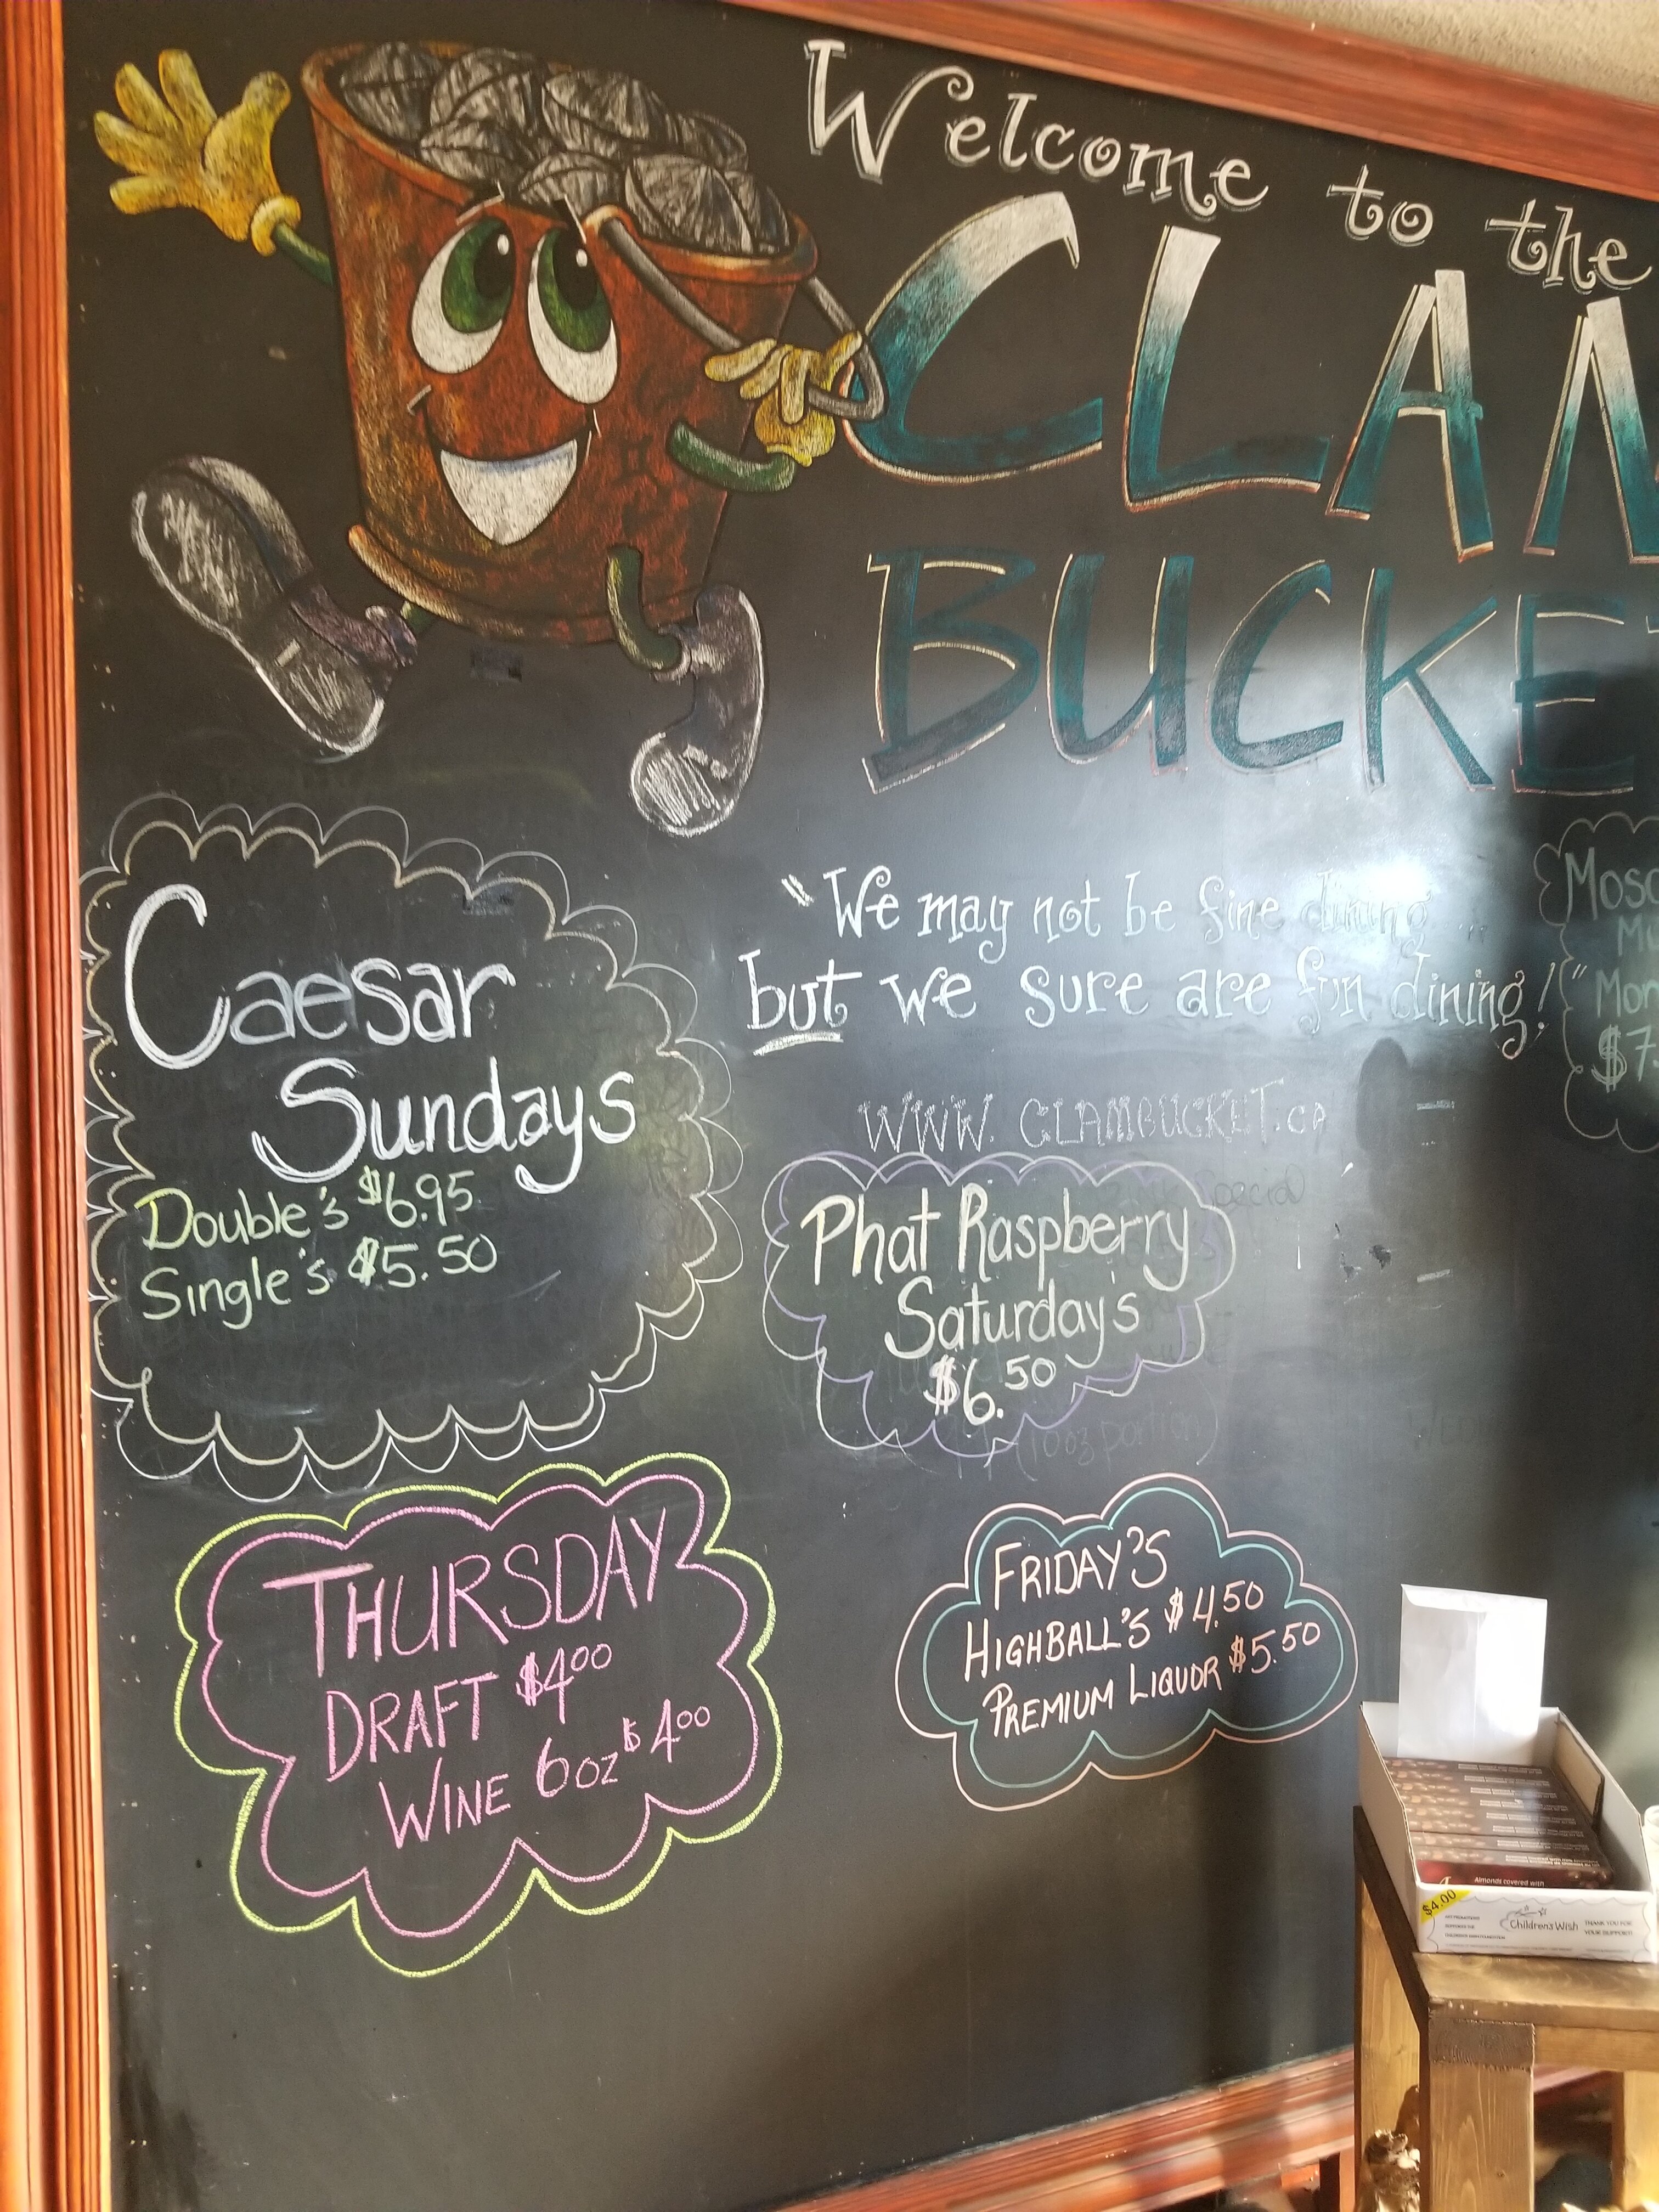 Welcome to the
CLAM
BUCKET
"We may not be fine dining...
but we sure are fun dining!"
WWW.CLAMBUCKET.ca
Mosc
Mu
Mon
$7.
Caesar
Sundays
Double's $6.95
Single's $5.50
Special
Phat Raspberry
Saturday's
$6.50
(10oz portion)
THURSDAY
DRAFT $4.00
WINE 6oz $4.00
FRIDAY'S
HIGHBALL'S $4.50
PREMIUM LIQUOR $5.50
Almonds covered with
$4.00
Children's Wish
THANK YOU FOR
YOUR SUPPORT!